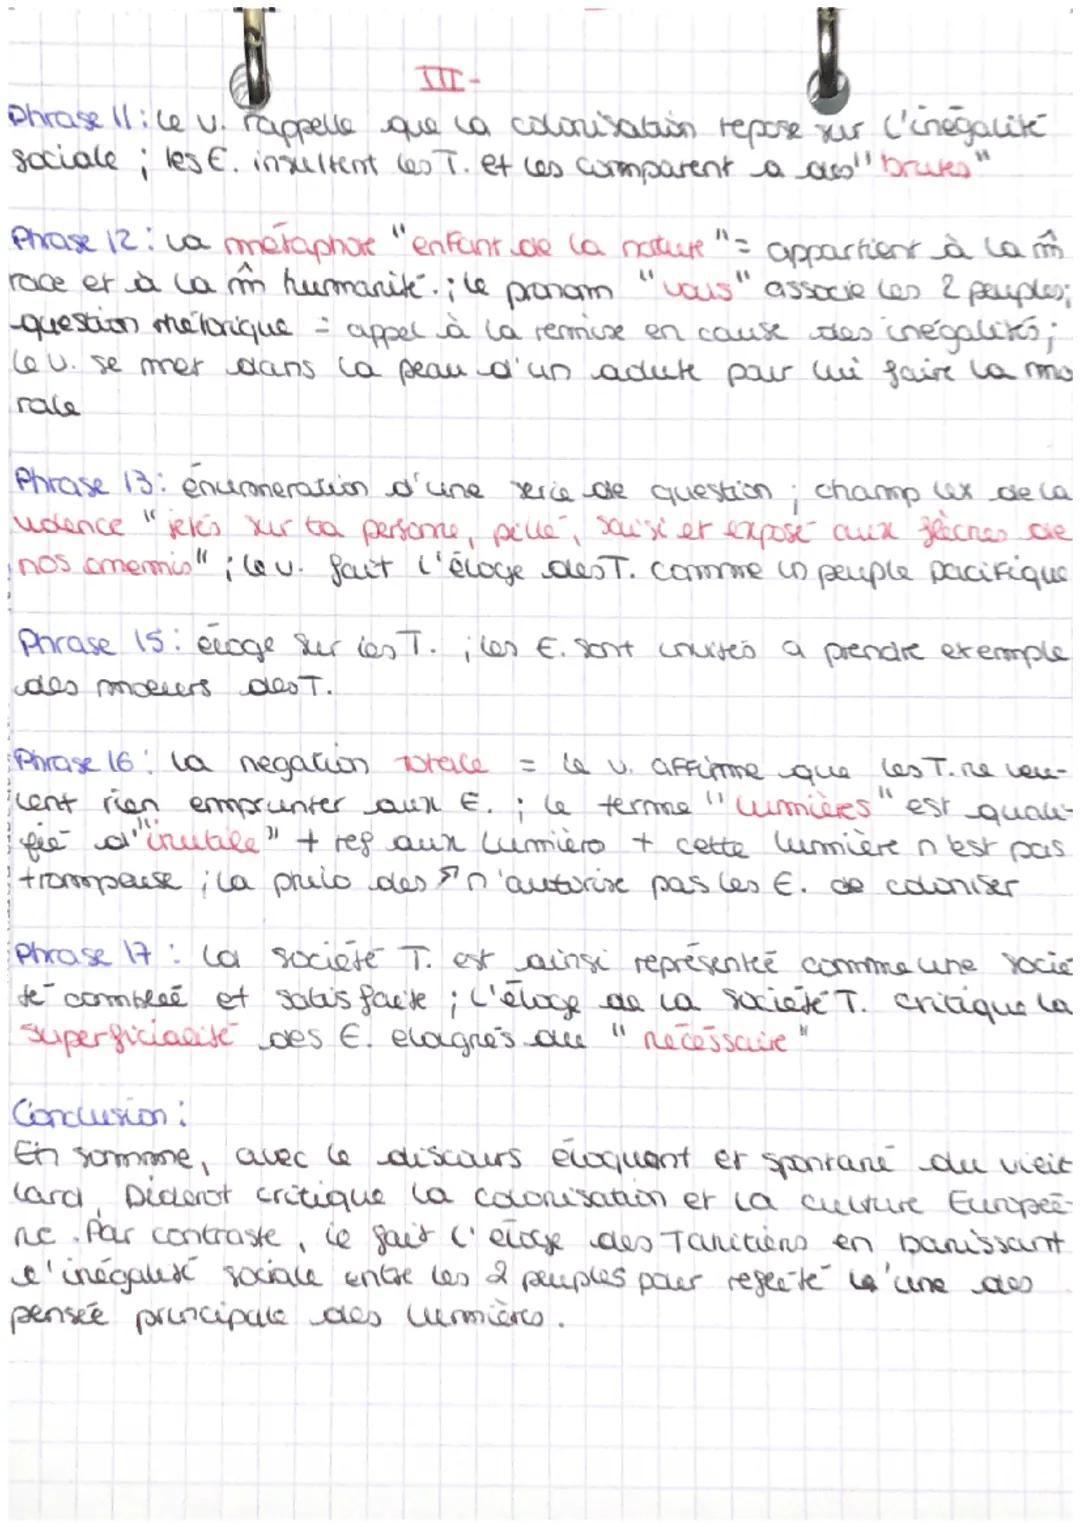 III-
Phrase 11: le v. rappelle que la colonisation repose sur l'inégalité
sociale ; les E. insultent les T. et les comparent a des "brutes"
Phrase 12: la métaphore "enfant de la nature" = appartient à la m̂
race et à la m̂ humanité. ; le pronom "vous" associe les 2 peuples;
question rhétorique = appel à la remise en cause des inégalités;
le v. se met dans la peau d'un adulte pour lui faire la mo
rale
Phrase 13: énumeration d'une serie de question ; champ lex de la
violence "jetés sur ta personne, pillé, saisi et exposé aux flèches de
nos ennemis" ; le v. fait l'éloge des T. comme un peuple pacifique
Phrase 15: éloge sur les T. ; les E. sont invités a prendre exemple
des moeurs des T.
Phrase 16: la negation totale = le v. affirme que les T. ne veu-
lent rien emprunter aux E. ; le terme "lumières" est quali-
fié d'"inutile" + ref aux Lumière + cette lumière n'est pas
trompeuse ; la philo des n'autorise pas les E. de coloniser
Phrase 17 : La société T. est ainsi représenté comme une socié
té comblée et satisfaite ; l'éloge de la société T. critique la
superficialité des E. élagnés du "nécéssaire"
Conclusion :
En somme, avec le discours éloquent et spontané du vieil
lard, Diderot critique la colonisation et la culture Européé-
ne. Par contraste, il fait l'éloge des Tahitiens en banissant
l'inégalité sociale entre les 2 peuples pour refleté l'une des
pensée principale des lumières.